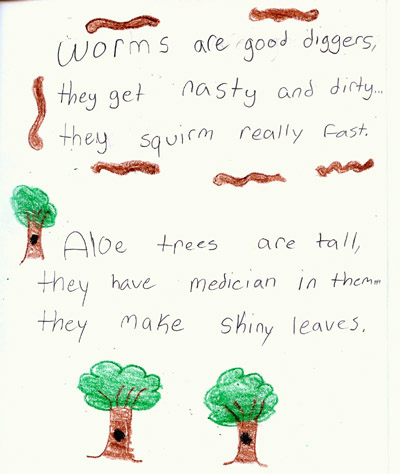 Worms are good diggers,
they get nasty and dirty...
they squirm really fast.
Aloe trees are tall,
they have medician in them...
they make shiny leaves.